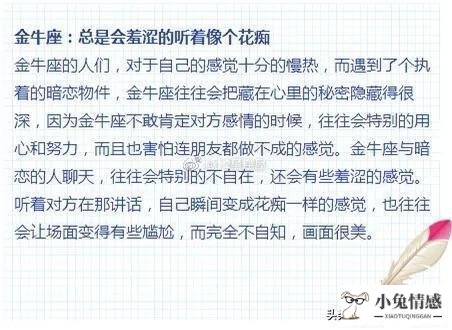 金牛座：总是会羞涩的听着像个花痴
金牛座的人们，对于自己的感觉十分的慢热，而遇到了个执
着的暗恋物件，金牛座往往会把藏在心里的秘密隐藏得很
深，因为金牛座不敢肯定对方感情的时候，往往会特别的用
心和努力，而且也害怕连朋友都做不成的感觉。金牛座与暗
恋的人聊天，往往会特别的不自在，还会有些羞涩的感觉。
听着对方在那讲话，自己瞬间变成花痴一样的感觉，也往往
会让场面变得有些尴尬，而完全不自知，画面很美。
头
小兔情感
XIAOTUQINGGAN